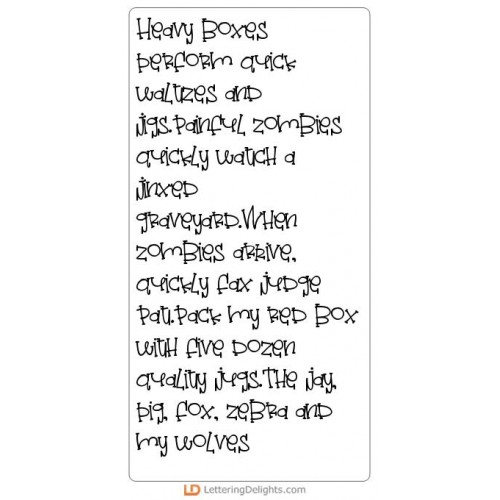 Heavy Boxes
perform quick
waltzes and
jigs.Painful zombies
quickly watch a
jinxed
graveyard.When
zombies arrive,
quickly fax judge
Pat.Pack my red box
with five dozen
quality jugs.The jay,
pig, fox, zebra and
my wolves
LD LetteringDelights.com